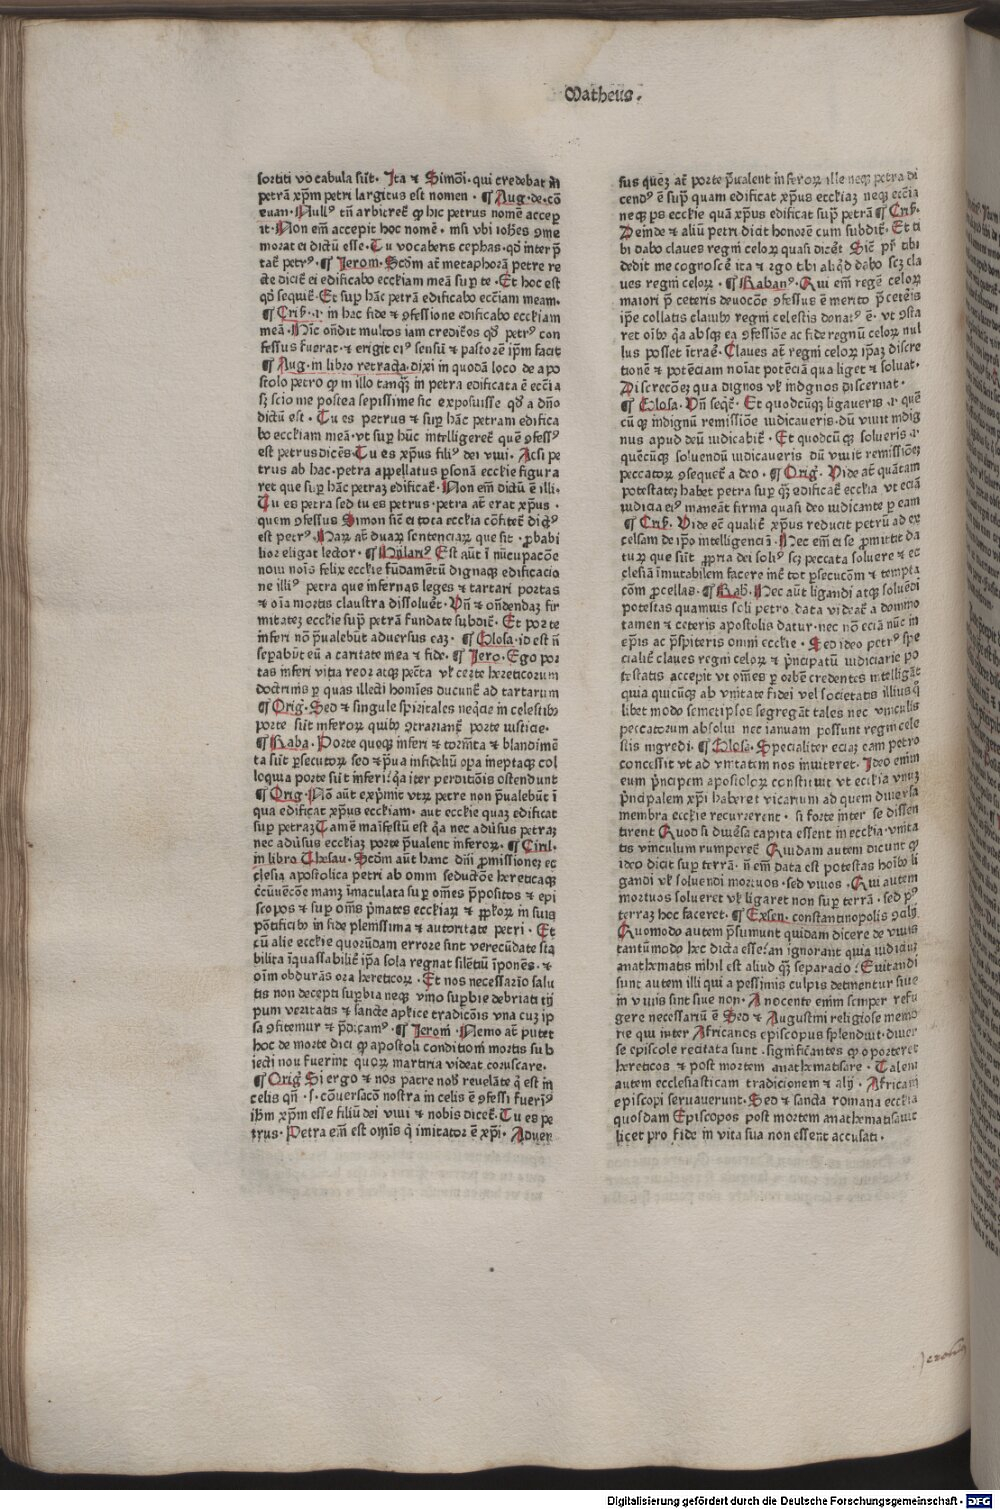 Matheus.
sortiti vocabula sūt. Ita ⁊ Simōi. qui credebat in
petrā xp̄m petri largitus est nomen. ¶ Aug. de. cō
euan. Null⁹ tn̄ arbitret̄ ꝙ hic petrus nomē accep
it. Non em̄ accepit hoc nomē. nisi vbi ioh̄es ꝯme
morat ei dictū esse. Tu vocaberis cephas. qd̓ interp̄
tat̄ petr⁹. ¶ Jerom. Scd̄m at̄ metaphorā petre re
cte dicit̄ ei edificabo eccl̄iam meā suꝑ te. Et hoc est
qd̓ sequit̄. Et suꝑ hāc petrā edificabo ecc̄iam meam.
¶ Cris̄. ⁊ in hac fide ⁊ ꝯfessione edificabo eccl̄iam
meā. Hīc on̄dit multos iam credit̄os qd̓ petr⁹ con
fessus fuerat. ⁊ erigit ei⁹ sensū ⁊ pastorē ip̄m facit
¶ Aug. in libro retracta. dixi in quodā loco de apo
stolo petro ꝙ in illo tanqꝫ in petra edificata ē ecc̄ia
sꝫ scio me postea sepissime sic exposuisse qd̓ a dn̄o
dictū est. Tu es petrus ⁊ suꝑ hāc petram edifica
bo eccl̄iam meā. vt suꝑ hūc intelligeret̄ quē ꝯfess⁹
est petrus dicēs. Tu es xp̄us fili⁹ dei viui. Ac si pe
trus ab hac. petra appellatus ꝑsonā eccl̄ie figura
ret que suꝑ hāc petraꝫ edificat̄. Non em̄ dictū ē illi.
Tu es petra sed tu es petrus. petra at̄ erat xp̄us.
quem ꝯfessus Simon sic̄ ei tota eccl̄ia cōfitet̄ dict⁹
est petr⁹. Haꝝ at̄ duaꝝ sentenciaꝝ que sit. ꝓbabi
lior eligat lector. ¶ Hylari⁹ Est aūt ī nūcupacōe
noui nois̄ felix eccl̄ie fūdamētū dignaqꝫ edificacio
ne illi⁹ petra que infernas leges ⁊ tartari portas
⁊ oīa mortis claustra dissoluēt. Vn̄ ⁊ on̄dendaꝫ fir
mitateꝫ eccl̄ie suꝑ petrā fundate subdit̄. Et porte
inferi nō p̄ualebūt aduersus eaꝫ. ¶ Glosa. id est n̄
seꝑabūt eū a caritate mea ⁊ fide. ¶ Jero. Ego por
tas inferi vitia reor atqꝫ pecc̄ta vl̓ certe hereticorum
doctrinis ꝑ quas illecti homīes ducunt̄ ad tartarum
¶ Oriḡ. Sed ⁊ singule spirītales neqͥcie in celestibꝰ
porte sūt inferoꝝ quibꝰ ꝯtrariant̄ porte iusticie.
¶ Raba. Porte quoqꝫ inferi ⁊ torm̄ta ⁊ blandimē
ta sūt ꝑsecutoꝝ sed ⁊ p̄ua infideliū oꝑa ineptaqꝫ col
loquia porte sūt inferi. qͥa iter perditōis ostendunt
¶ Orig. Nō aūt exp̄mit vtꝝ petre non p̄ualebūt ī
qua edificat xp̄us eccl̄iam. aut eccl̄ie quaꝫ edificat
suꝑ petraꝫ Tamē maīfestū est qͥa nec adūsus petraꝫ
nec adūsus eccl̄iaꝫ porte p̄ualent inferoꝝ. ¶ Ciril.
in libro Thesau. Scd̄m aūt hanc dn̄i ꝓmissioneꝫ ec
clesia apostolica petri ab omni seductōe hereticaqꝫ
manꝫ īmaculata suꝑ om̄es p̄positos ⁊ epi
scopos ⁊ suꝑ om̄s p̄mates eccl̄iaꝝ ⁊ in suis
pōtificibꝰ in fide plenissima ⁊ autoritate petri. Et
cū alie eccl̄ie quorūdam errore sint verecūdate sta
bilita īquassabilit̄ ip̄a sola regnat silētiū īponēs. ⁊
oīm obdurās ora hereticoꝝ. Et nos necessario salu
tis non decepti suꝑbia neqꝫ vino suꝑbie debriati tij
pum veritatis ⁊ sancte apl̓ice tradicōis vna cuꝫ ip
sa ꝯfitemur ⁊ p̄dicam⁹. ¶ Jerom̄. Nemo at̄ putet
hoc de morte dici ꝙ apostoli conditioni mortis sub
iecti non fuerint quoꝝ martiria videat coruscare.
¶ Oriḡ. Si ergo ⁊ nos patre nob̄ reuelāte qͥ est in
celis qn̄. s. cōuersacō nostra in celis ē ꝯfessi fuerim⁹
ih̄m xp̄m esse filiū dei viui ⁊ nobis dicet̄. Tu es pe
trus. Petra em̄ est om̄is qͥ imitator ē xp̄i. Aduer
sus quēꝫ at̄ porte p̄ualent inferoꝝ ille neqꝫ petra di
cend⁹ ē suꝑ quam edificat xp̄us eccl̄iaꝫ neqꝫ ecc̄ia
neqꝫ ps eccl̄ie quā xp̄us edificat suꝑ petrā ¶ Cris̄.
Deinde ⁊ aliū petri dicit honorē cum subdit̄. Et ti
bi dabo claues regni celoꝝ quasi dicet̄. Sic̄ pr̄ tibi
dedit me cognoscē ita ⁊ ego tibi aliqͥd dabo scꝫ cla
ues regni celoꝝ. ¶ Raban⁹. Qui em̄ regē celoꝝ
maiori p̄ ceteris deuocōe ꝯfessus ē merito p̄ ceteris
ip̄e collatis clauibꝰ regni celestis donat⁹ ē. vt ꝯsta
ret oībꝰ qͥa absqꝫ ea ꝯfessiōe ac fide regnū celoꝝ nul
lus posset ītrae̓. Claues at̄ regni celoꝝ ip̄aꝫ discre
tionē ⁊ potēciam noīat potēciā qua liget ⁊ soluat.
Discrecōeꝫ qua dignos vl̓ indignos discernat.
¶ Glosa. Vn̄ seqͥt̄. Et quodcūqꝫ ligaueris ⁊ quē
cūqꝫ indignū remissiōe iudicaueris. dū viuit indig
nus apud deū iudicabit̄. Et quodcūqꝫ solueris ⁊
quēcūqꝫ soluendū iudicaueris dū viuit remissioneꝫ
peccatoꝝ ꝯsequet̄ a deo. ¶ Oriḡ. Vide at̄ quātam
potestateꝫ habet petra suꝑ qͣꝫ edificat̄ eccl̄ia vt eciā
iudicia ei⁹ maneāt firma quasi deo iudicante ꝑ eam
¶ Cris̄. Vide eā qualit̄ xp̄us reducit petrū ad ex
celsam de ip̄o intelligenciā. Hec em̄ ei se ꝓmittit da
tuꝝ que sūt ꝓpria dei soli⁹ sꝫ peccata soluere ⁊ ec
clesiā īmutabilem facere int̄ tot ꝑsecucōm ⁊ tempta
cōm ꝓcellas. ¶ Rab̄. Hec aūt ligandi atqꝫ soluēdi
potestas quamuis soli petro data videat̄ a domino
tamen ⁊ ceteris apostolis datur. nec nō eciā nūc in
ep̄is ac p̄sbiteris omni eccl̄ie. Sed ideo petr⁹ spe
cialit̄ claues regni celoꝝ ⁊ p̄ncipatū iudiciarie po
testatis accepit vt om̄es ꝑ orbē credentes intelligāt
quia quicūqꝫ ab vnitate fidei vel societatis illius qͦ
libet modo semetipsos segregāt tales nec vinculis
peccatorum absolui nec ianuam possunt regni cele
stis ingredi. ¶ Glosa. Specialiter eciaꝫ eam petro
concessit vt ad vnitatem nos inuiteret. Ideo enim
eum p̄ncipem apostoloꝝ constituit vt eccl̄ia vnuꝫ
p̄ncipalem xp̄i haberet vicarium ad quem diuersa
membra eccl̄ie recurrerent. si forte inter se dissen
tirent Quod si diuersa capita essent in eccl̄ia. vnita
tis vinculum rumperet̄ Quidam autem dicunt ꝙ
ideo dicit suꝑ terrā. n̄ em̄ data est potestas hoībꝰ li
gandi vl̓ soluendi mortuos. sed viuos. Qui autem
mortuos solueret vl̓ ligaret non suꝑ terrā. sed p⁹
terraꝫ hoc faceret. ¶ Exsen. constantinopolis ꝯcilij
Quomodo autem p̄sumunt quidam dicere de viuis
tantūmodo hec dicta esse? an ignorant quia iudiciuꝫ
anathematis nihil est aliud qͣꝫ separacio? Euitandi
sunt autem illi qui a pessimis culpis detinentur siue
in viuis sint siue non. A nocente enim semper refu
gere necessariū ē Sed ⁊ Augustini religiose memo
rie qui inter Africanos episcopus splenduit. diuer
se epistole recitata sunt. significantes ꝙ oporteret
hereticos ⁊ post mortem anathematisare. Talem
autem ecclesiasticam tradicionem ⁊ alij. Africani
episcopi seruauerunt. Sed ⁊ sancta romana eccl̄ia
quosdam Episcopos post mortem anathematisauit
licet pro fide in vita sua non essent accusati.
Digitalisierung gefördert durch die Deutsche Forschungsgemeinschaft - DFG